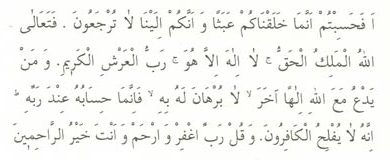 اَ فَحَسِبْتُمْ اَنَّمَا خَلَقْنَاكُمْ عَبَثًا وَ اَنَّكُمْ اِلَيْنَا لاَ تُرْجَعُونَ . فَتَعَالَى
اللهُ الْمَلِكُ الْحَقُّ ج لاَ اِلٰهَ اِلاَّ هُوَ ج رَبُّ الْعَرْشِ الْكَرِيمِ. وَ مَنْ
يَدْعُ مَعَ اللهِ اِلٰهًا اٰخَرَ لا لاَ بُرْهَانَ لَهُ بِهِ لا فَاِنَّمَا حِسَابُهُ عِنْدَ رَبِّهِ ط
اِنَّهُ لاَ يُفْلِحُ الْكَافِرُونَ. وَ قُلْ رَبِّ اغْفِرْ وَ ارْحَمْ وَ اَنْتَ خَيْرُ الرَّاحِمِينَ